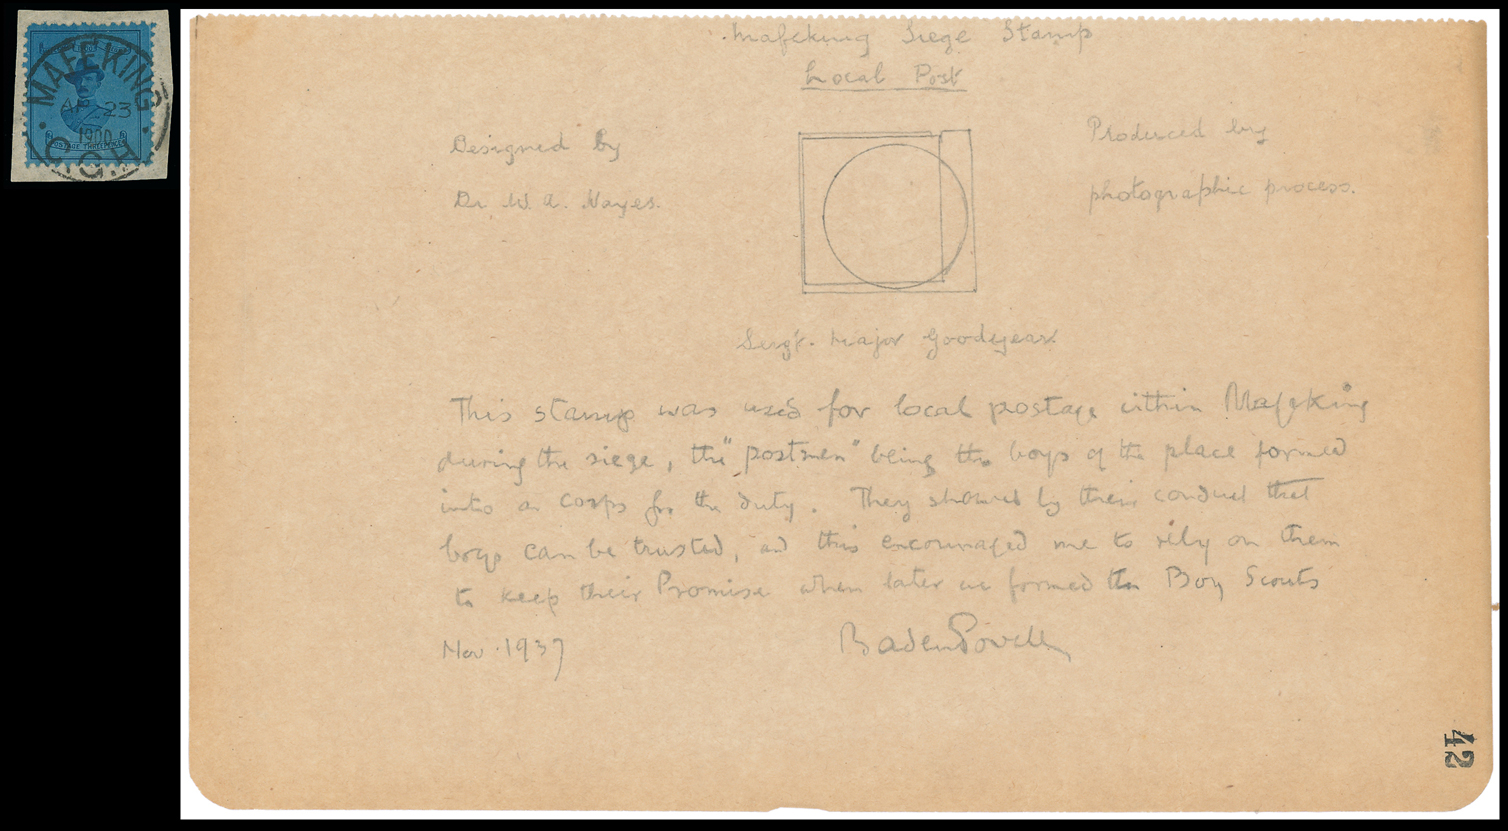 MAFEKING
AP 23
1900
C.G.H.
POSTAGE THREEPENCE
Mafeking Siege Stamp
Local Post
Designed by
Dr. W. A. Hayes.
Produced by
photographic process.
Sergt. Major Goodyear.
This stamp was used for local postage within Mafeking
during the siege, the "postmen" being the boys of the place formed
into a corps for the duty. They showed by their conduct that
boys can be trusted, and this encouraged me to rely on them
to keep their Promise when later we formed the Boy Scouts
Nov. 1937
Baden Powell
42